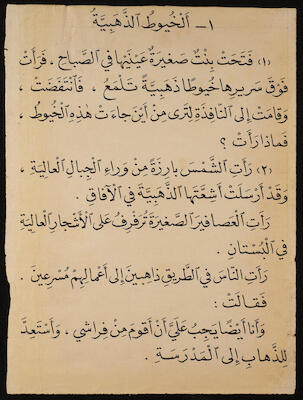 ١ - اَلْخُيوطُ الذَّهَبِيَّةُ
(١) فَتَحَتْ بِنْتٌ صَغيرَةٌ عَيْنَيْها في الصَّباحِ ، فَرَأَتْ
فَوْقَ سَريرِها خُيوطًا ذَهَبِيَّةً تَلْمَعُ ، فَانْتَفَضَتْ ،
وَقامَتْ إلى النّافِذَةِ لِتَرى مِنْ أَيْنَ جاءَتْ هٰذِهِ الْخُيوطُ ،
فَماذا رَأَتْ ؟
(٢) رَأَتِ الشَّمْسَ بارِزَةً مِنْ وَراءِ الْجِبالِ الْعالِيَةِ ،
وَقَدْ أَرْسَلَتْ أَشِعَّتَها الذَّهَبِيَّةَ في الْآفاقِ .
رَأَتِ الْعَصافيرَ الصَّغيرَةَ تُرَفْرِفُ عَلى الْأَشْجارِ الْعالِيَةِ
في الْبُسْتانِ .
رَأَتِ النّاسَ في الطَّريقِ ذاهِبينَ إلى أَعْمالِهِمْ مُسْرِعينَ .
فَقالَتْ :
وَأَنا أَيْضًا يَجِبُ عَلَيَّ أَنْ أَقومَ مِنْ فِراشي ، وَأَسْتَعِدَّ
لِلذَّهابِ إلى الْمَدْرَسَةِ .